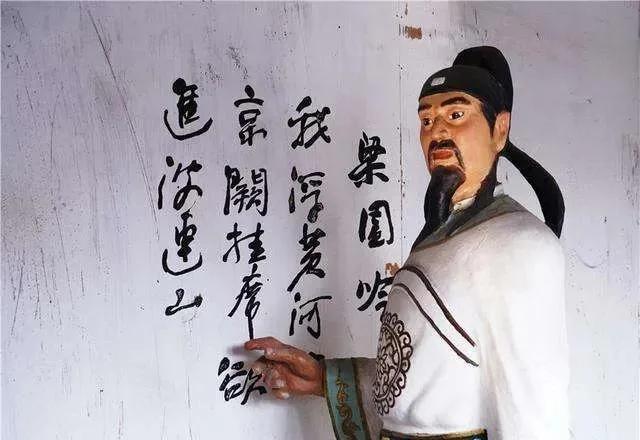 梁園吟
我浮黄河
京闕挂席欲
進波連山